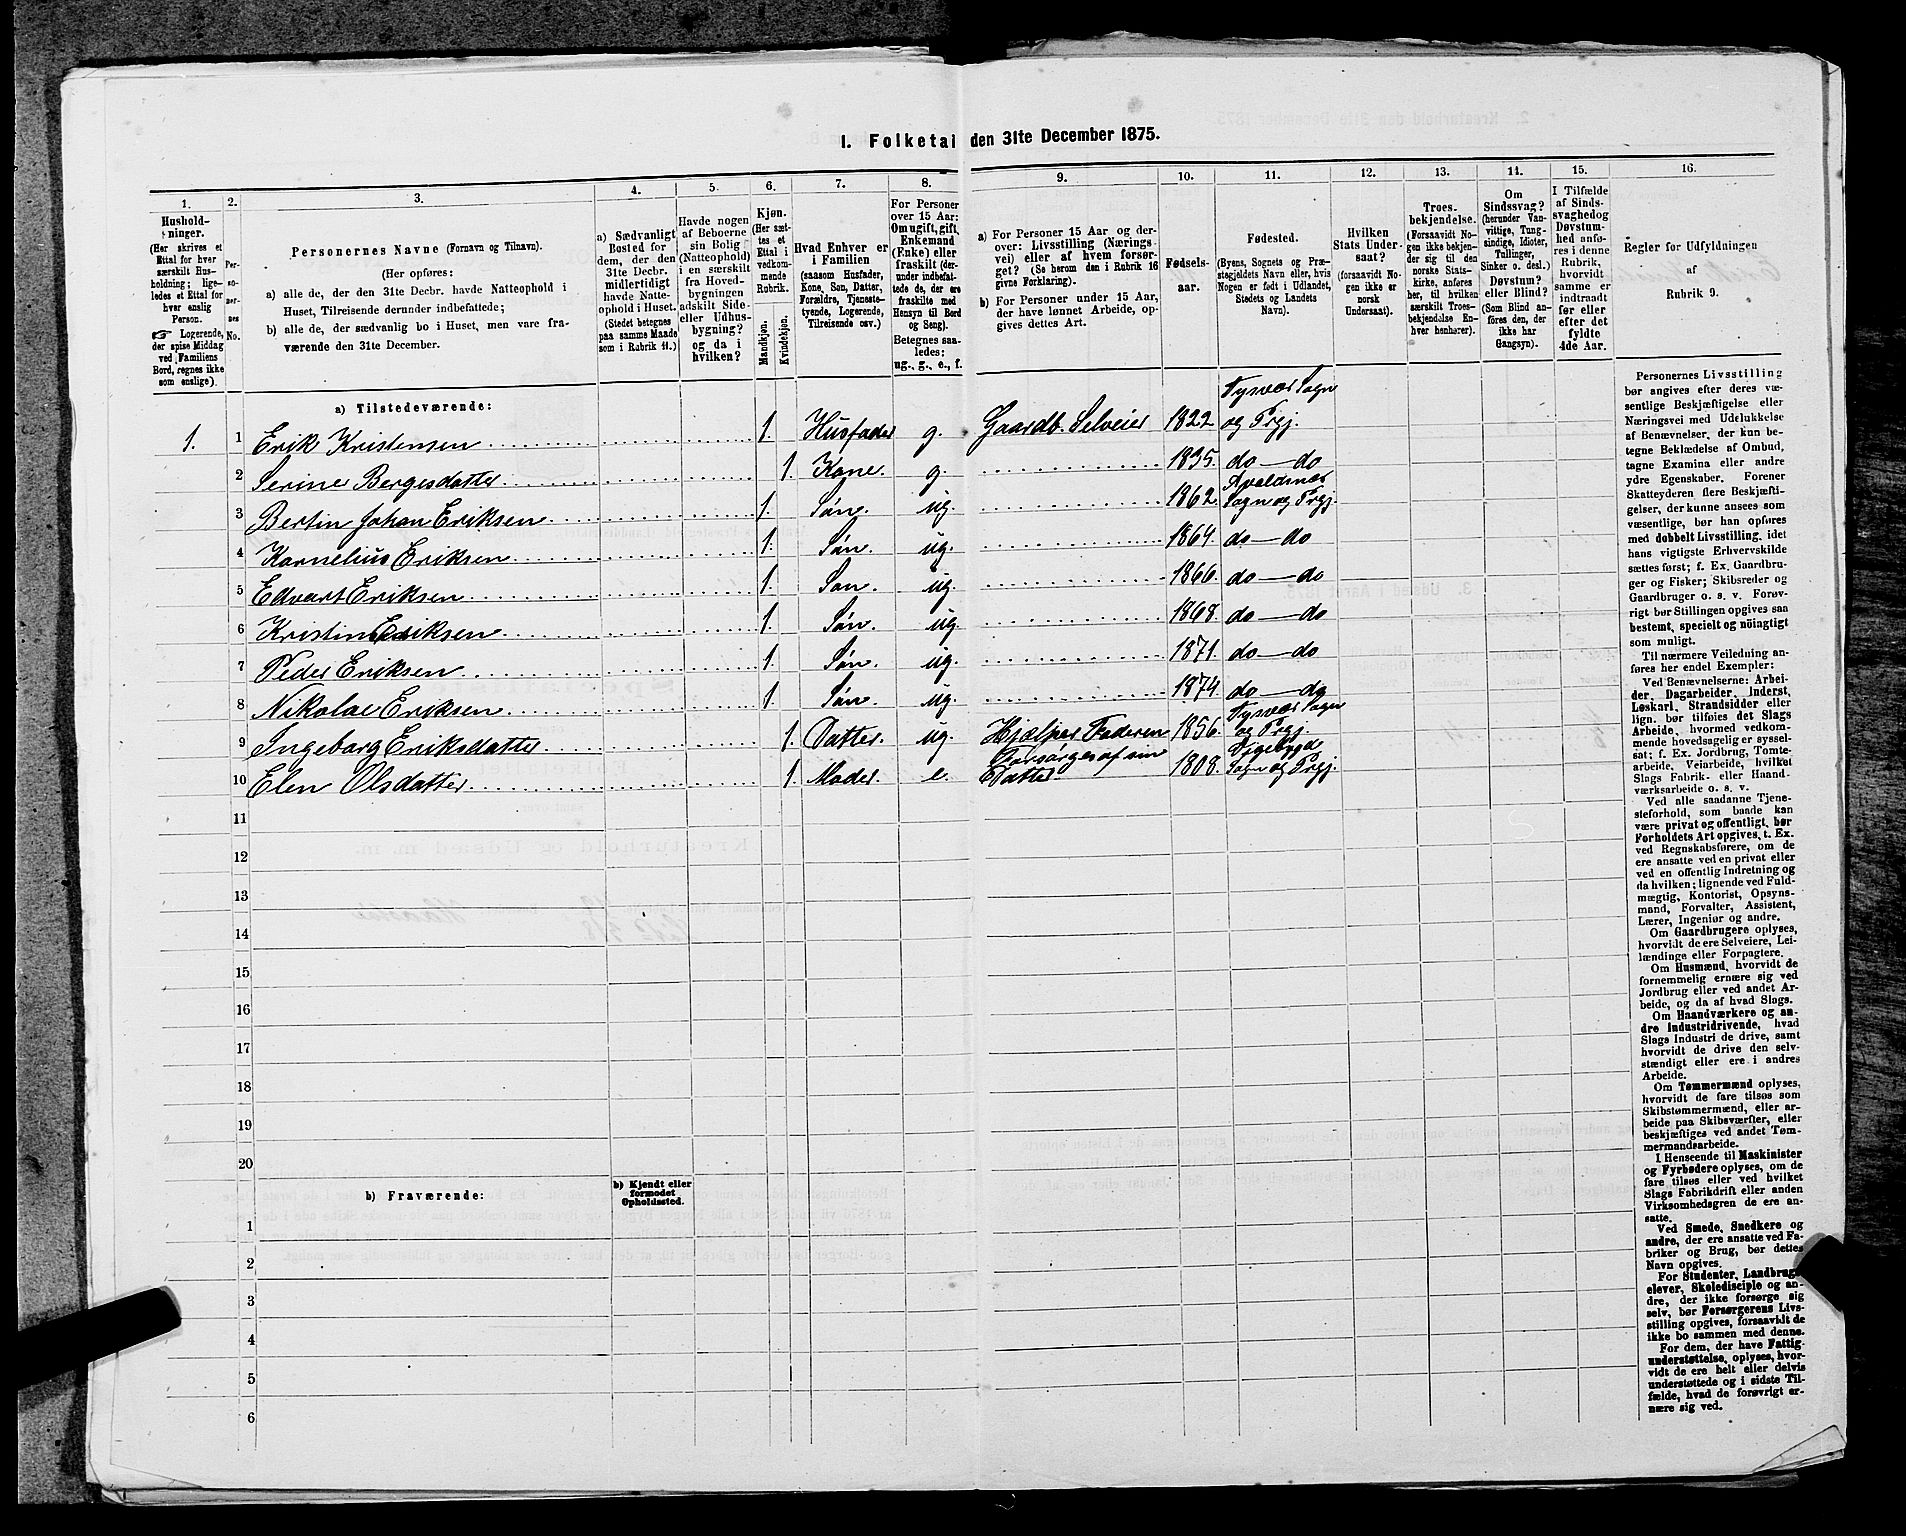 1. Folketal den 31te December 1875.
1.
Hushold-
ninger.
(Her skrives et
Ettal for hver
særskilt Hus-
holdning; lige-
ledes et Ettal for
hver enslig
Person.
☞ Logerende,
der spise Middag
ved Familiens
Bord, regnes ikke
som enslige).
2.
Per-
so-
ner-
nes
No.
3.
Personernes Navne (Fornavn og Tilnavn).
(Her opføres:
a) alle de, der den 31te Decbr. havde Natteophold i
Huset, Tilreisende derunder indbefattede;
b) alle de, der sædvanlig bo i Huset, men vare fra-
værende den 31te December.
4.
a) Sædvanligt
Bosted for
dem, der den
31te Decbr.
midlertidigt
havde Natte-
ophold i Huset.
(Stedet betegnes
paa samme Maade
som i Rubrik 11.)
5.
Havde nogen
af Beboerne
sin Bolig
(Natteophold)
i en særskilt
fra Hoved-
bygningen
adskilt Side-
eller Udhus-
bygning?
og da i
hvilken?
6.
Kjøn.
(Her sæt-
tes et
Ettal i
vedkom-
mende
Rubrik.
Mandkjøn.
Kvindekjøn.
7.
Hvad Enhver er
i Familien
(saasom Husfader,
Kone, Søn, Datter,
Forældre, Tjeneste-
tyende, Logerende,
Tilreisende osv.)
8.
For Personer
over 15 Aar:
Om ugift, gift,
Enkemand
(Enke) eller
fraskilt (der-
under indbefat-
tede de, der ere
fraskilte med
Hensyn til Bord
og Seng).
Betegnes saa-
ledes:
ug., g., e., f.
9.
a) For Personer 15 Aar og der-
over: Livsstilling (Nærings-
vei) eller af hvem forsør-
get? (Se herom den i Rubrik 16
givne Forklaring).
b) For Personer under 15 Aar,
der have lønnet Arbeide, op-
gives dettes Art.
10.
Fødsels-
aar.
11.
Fødested.
(Byens, Sognets og Præ-
stegjeldets Navn eller, hvis
Nogen er født i Udlandet,
Stedets og Landets
Navn).
12.
Hvilken
Stats Under-
saat?
(forsaavidt No-
gen ikke er
norsk
Undersaat).
13.
Troes-
bekjendelse.
(Forsaavidt No-
gen ikke bekjen-
der sig til den
norske Stats-
kirke, anføres
her, til hvilken
særskilt Troes-
bekjendelse En-
hver henhører).
14.
Om
Sindssvag?
(herunder Van-
vittige, Tung-
sindige, Idioter,
Tullinger,
Sinker o. desl.)
Døvstum?
eller Blind?
(Som Blind an-
føres den, der
ikke har
Gangsyn).
15.
I Tilfælde
af Sinds-
svaghed og
Døvstum-
hed anfø-
res i denne
Rubrik,
hvorvidt
samme er
indtraadt
før eller
efter det
fyldte
4de Aar.
16.
Regler for Udfyldningen
af
Rubrik 9.
a) Tilstedeværende:
1. 1 Erik Kristensen 1. Husfader g. Gaardb. Selveier 1822 Tysvær Sogn og Prgj.
2 Serine Bergesdatter 1. Kone. g. 1835. do—do
3 Bertin Johan Eriksen 1. Søn. ug. 1862. Avaldsnæs Sogn og Prgj.
4 Kornelius Eriksen 1. Søn. ug. 1864. do—do
5 Edvart Eriksen 1. Søn. ug. 1866. do—do
6 Eriksen 1. Søn. ug. 1868. do—do
7 Peder Eriksen 1. Søn. ug. 1871. do—do
8 Nikolae Eriksen 1. Søn. ug. 1874. do—do
9 Ingeborg Eriksdatter 1. Datter. ug. Hjælper Faderen 1856. Tysvær Sogn og Prgj.
10 Elen Olsdatter 1. Moder. e. Forsørges af sin Datter 1808. Sogn og Prgj.
11
12
13
14
15
16
17
18
19
20
b) Fraværende:
b) Kjendt eller
formodet
Opholdssted.
1
2
3
4
5
6
Personernes Livsstilling
bør angives efter deres væ-
sentlige Beskjæftigelse eller
Næringsvei med Udelukkelse
af Benævnelser, der kun be-
tegne Beklædelse af Ombud,
tagne Examina eller andre
ydre Egenskaber. Forener
Skatteyderen flere Beskjæfti-
gelser, der kunne ansees som
væsentlige, bør han opføres
med dobbelt Livsstilling, idet
hans vigtigste Erhvervskilde
sættes først; f. Ex. Gaardbru-
ger og Fisker; Skibsreder og
Gaardbruger o. s. v. Forøv-
rigt bør Stillingen opgives saa
bestemt, specielt og nöiagtigt
som muligt.
Til nærmere Veiledning an-
føres her endel Exempler:
Ved Benævnelserne: Arbei-
der, Dagarbeider, Inderst,
Løskarl, Strandsidder eller
lign. bør tilføies det Slags
Arbeide, hvormed vedkom-
mende hovedsagelig er syssel-
sat; f. Ex. Jordbrug, Tomte-
arbeide, Veiarbeide, hvilket
Slags Fabrik- eller Haand-
værksarbeide o. s. v.
Ved alle saadanne Tjene-
steforhold, som baade kan
være privat og offentligt, bør
Forholdets Art opgives, t. Ex.
ved Regnskabsførere, om de
ere ansatte ved en privat eller
ved en offentlig Indretning og
da hvilken; lignende ved Fuld-
mægtig, Kontorist, Opsyns-
mand, Forvalter, Assistent,
Lærer, Ingeniør og andre.
Om Gaardbrugere oplyses,
hvorvidt de ere Selveiere, Lei-
lændinge eller Forpagtere.
Om Husmænd, hvorvidt de
fornemmelig ernære sig ved
Jordbrug eller ved andet Ar-
beide, og da af hvad Slags.
Om Haandværkere og an-
dre Industridrivende, hvad
Slags Industri de drive, samt
hvorvidt de drive den selv-
stændigt eller ere i andres
Arbeide.
Om Tømmermænd oplyses,
hvorvidt de fare tilsøs som
Skibstømmermænd, eller ar-
beide paa Skibsværfter, eller
beskjæftiges ved andet Tøm-
mermandsarbeide.
I Henseende til Maskinister
og Fyrbødere oplyses, om de
fare tilsøs eller ved hvilket
Slags Fabrikdrift eller anden
Virksomhedsgren de ere an-
satte.
Ved Smede, Snedkere og
andre, der ere ansatte ved Fa-
briker og Brug, bør dettes
Navn opgives.
For Studenter, Landbrugs-
elever, Skoledisciple og an-
dre, der ikke forsørge sig
selv, bør Forsørgerens Livs-
stilling opgives, forsaavidt de
ikke bo sammen med denne.
For dem, der have Fattig-
understøttelse, oplyses, hvor-
vidt de ere helt eller delvis
understøttede og i sidste Til-
fælde, hvad de forøvrigt er-
nære sig ved.